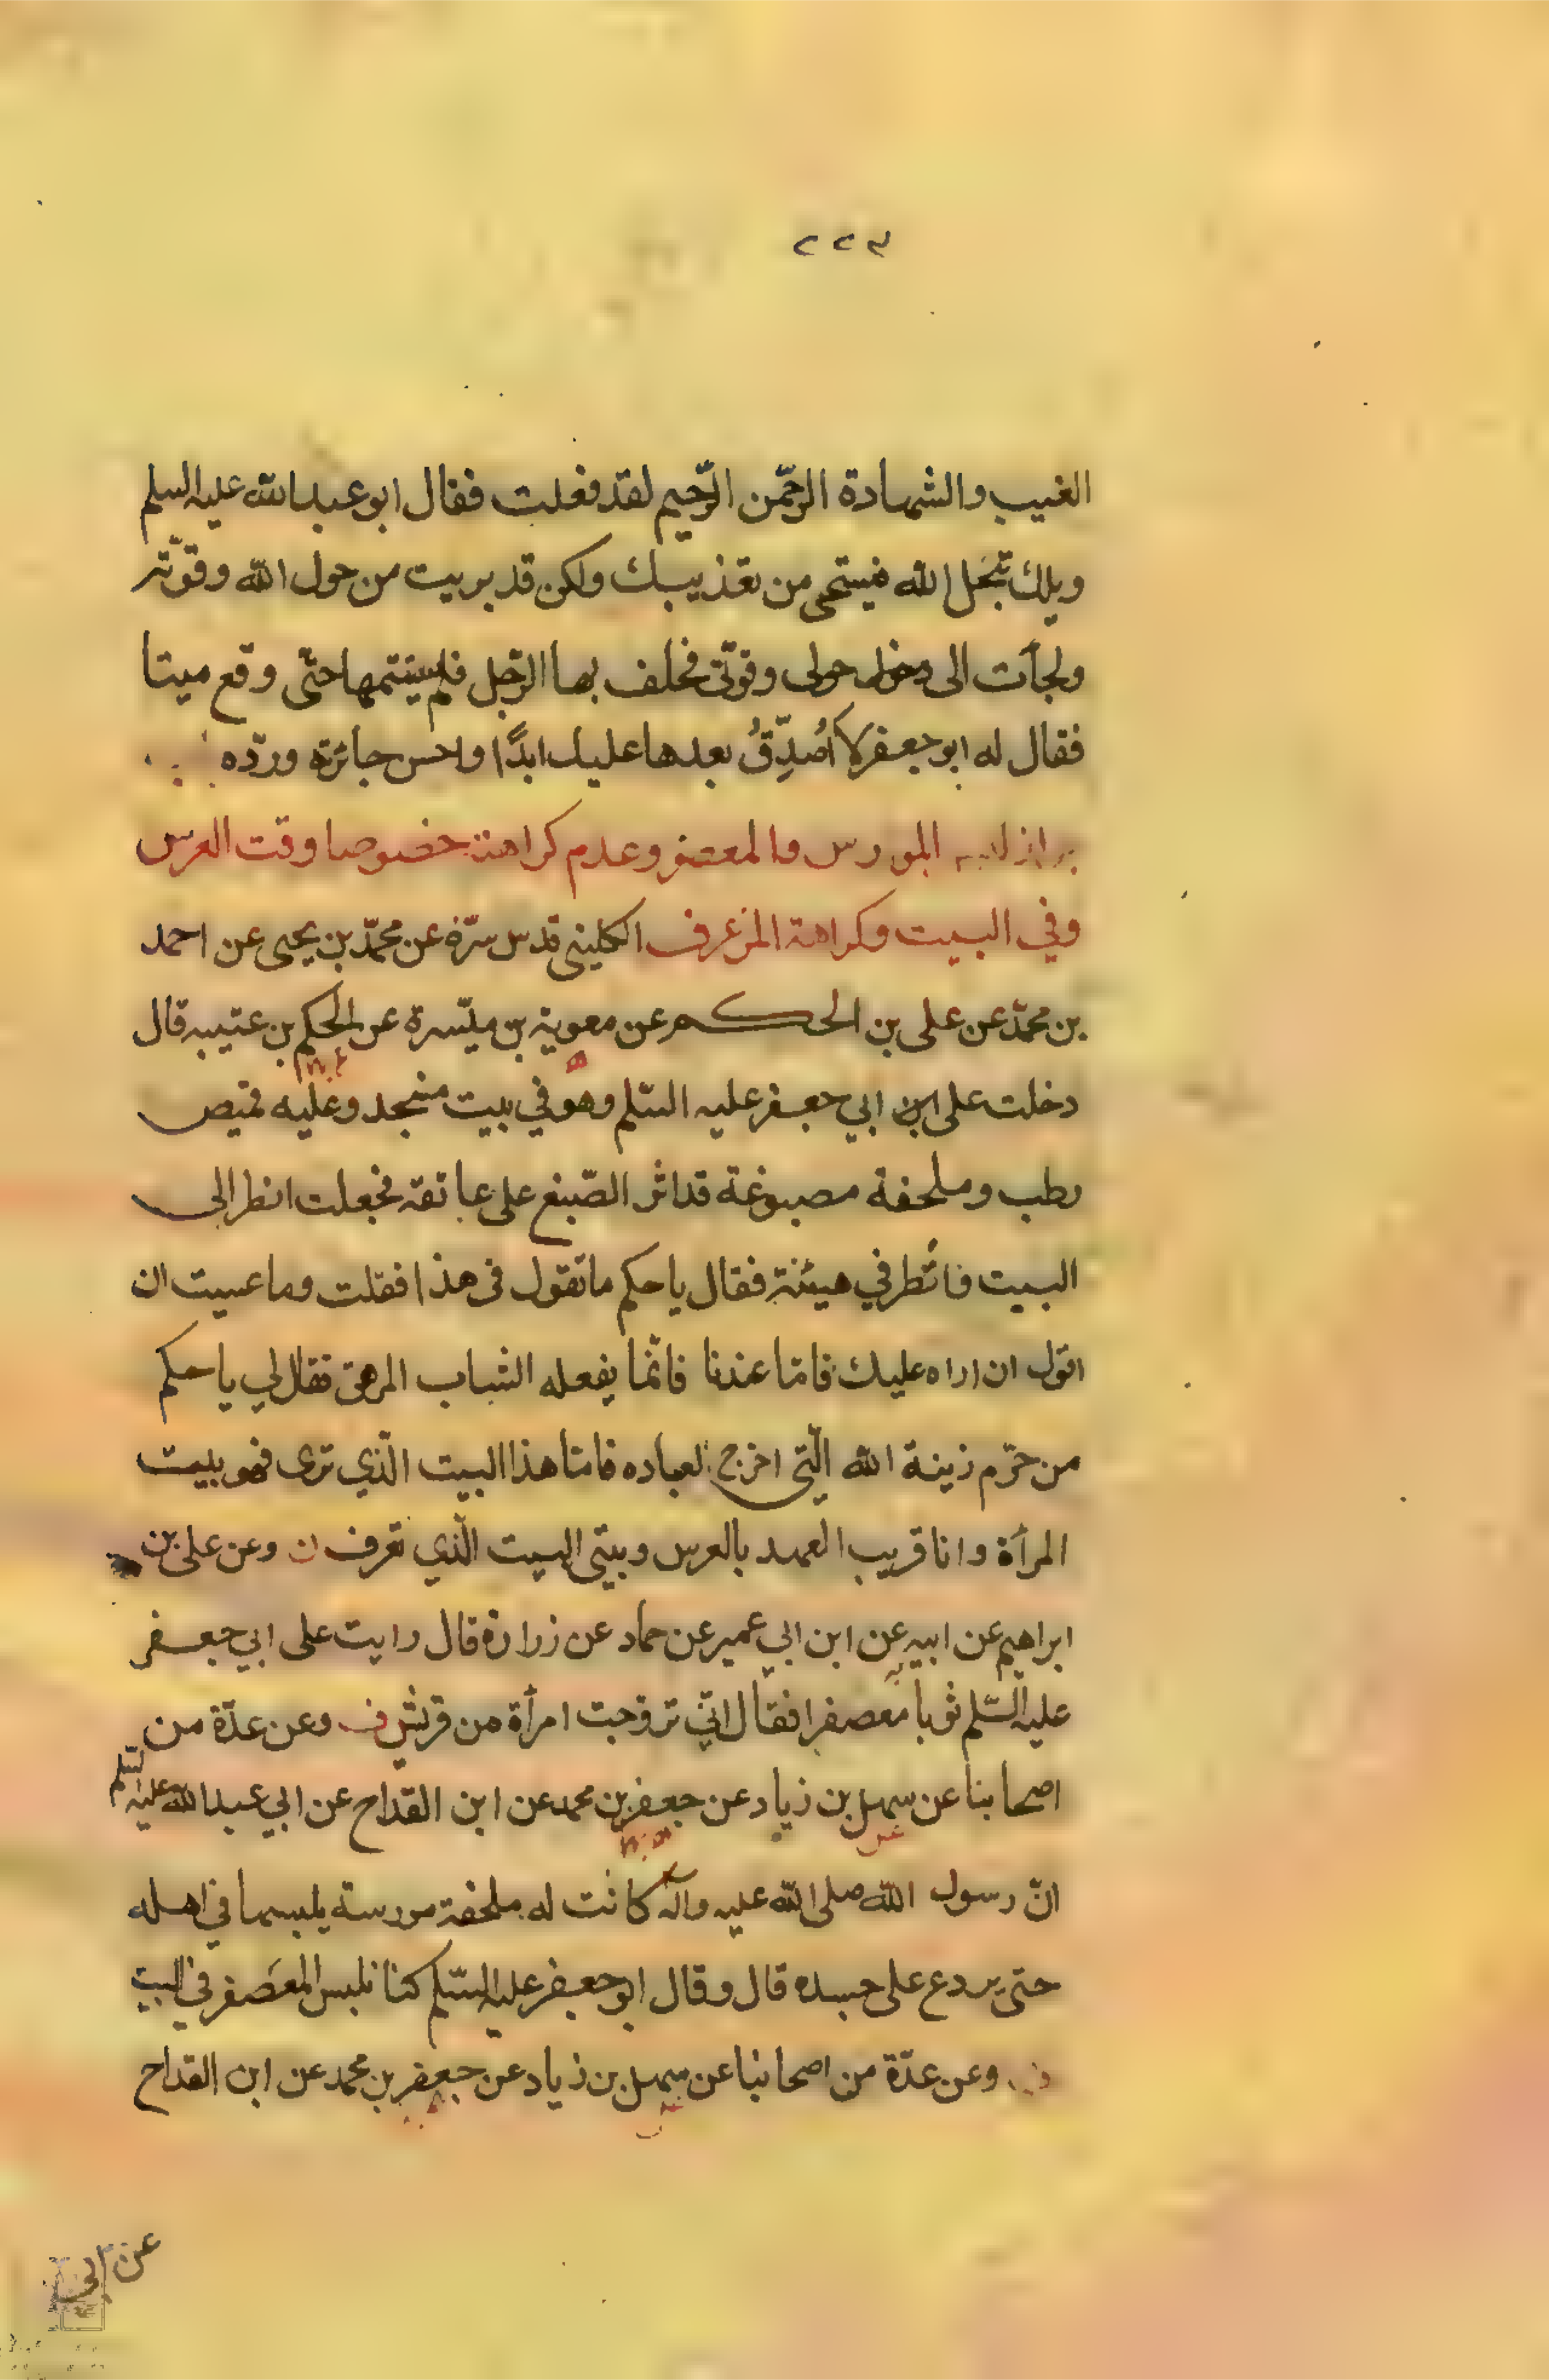 ٢٢٣
الغيب والشهادة الرحمن الرّحيم لقد فعلت فقال ابو عبد الله عليه السلم
ويلك تبجّل الله فيستحي من تعذيبك ولكن قد بريت من حول الله وقوّته
ولجأت الى حولي وقوّتي فحلف بها الرّجل فلم يستتمها حتّى وقع ميتا
فقال له ابو جعفر لا أُصَدِّقُ بعدها عليك ابدًا واحسن جائزته وردّه
المورس والمعصفر وعدم كراهته خصوصا وقت العرس
وفي البيت وكراهة المزعرف الكليني قدس سرّه عن محمّد بن يحيى عن احمد
بن محمّد عن على بن الحكم عن معوية بن ميّسرة عن الحكم بن عتيبه قال
دخلت على ابي جعفر عليه السّلم وهو في بيت منجد وعليه قميص
رطب وملحفة مصبوغة قد اثر الصّبغ على عاتقه فجعلت انظر الى
البيت فأنظر في هيئته فقال يا حكم ما تقول في هذا فقلت وما عسيت ان
اقول ان اراه عليك فامّا عندنا فانّما يفعله الشاب المرهق فقال لي يا حكم
من حرّم زينة الله الّتي اخرج لعباده فامّا هذا البيت الّذي ترى فهو بيت
المرأة وانا قريب العهد بالعرس وبيتي البيت الّذي تعرف ن وعن على بن
ابراهيم عن ابيه عن ابن ابي عمير عن حماد عن زرارة قال رايت على ابي جعفر
عليه السّلم ثوباً معصفرا فقال انّي تزوجت امرأة من قريش ف وعن عدّة من
اصحابنا عن سهل بن زياد عن جعفر بن محمد عن ابن القداح عن ابي عبد الله عليه السّلم
انّ رسول الله صلى الله عليه وآله كانت له ملحفة مورسة يلبسها في اهله
حتى يردع على جسده قال وقال ابو جعفر عليه السّلم كنا نلبس المعَصفر في البيت
وعن عدّة من اصحابنا عن سهل بن زياد عن جعفر بن محمد عن ابن القداح
عن ابي